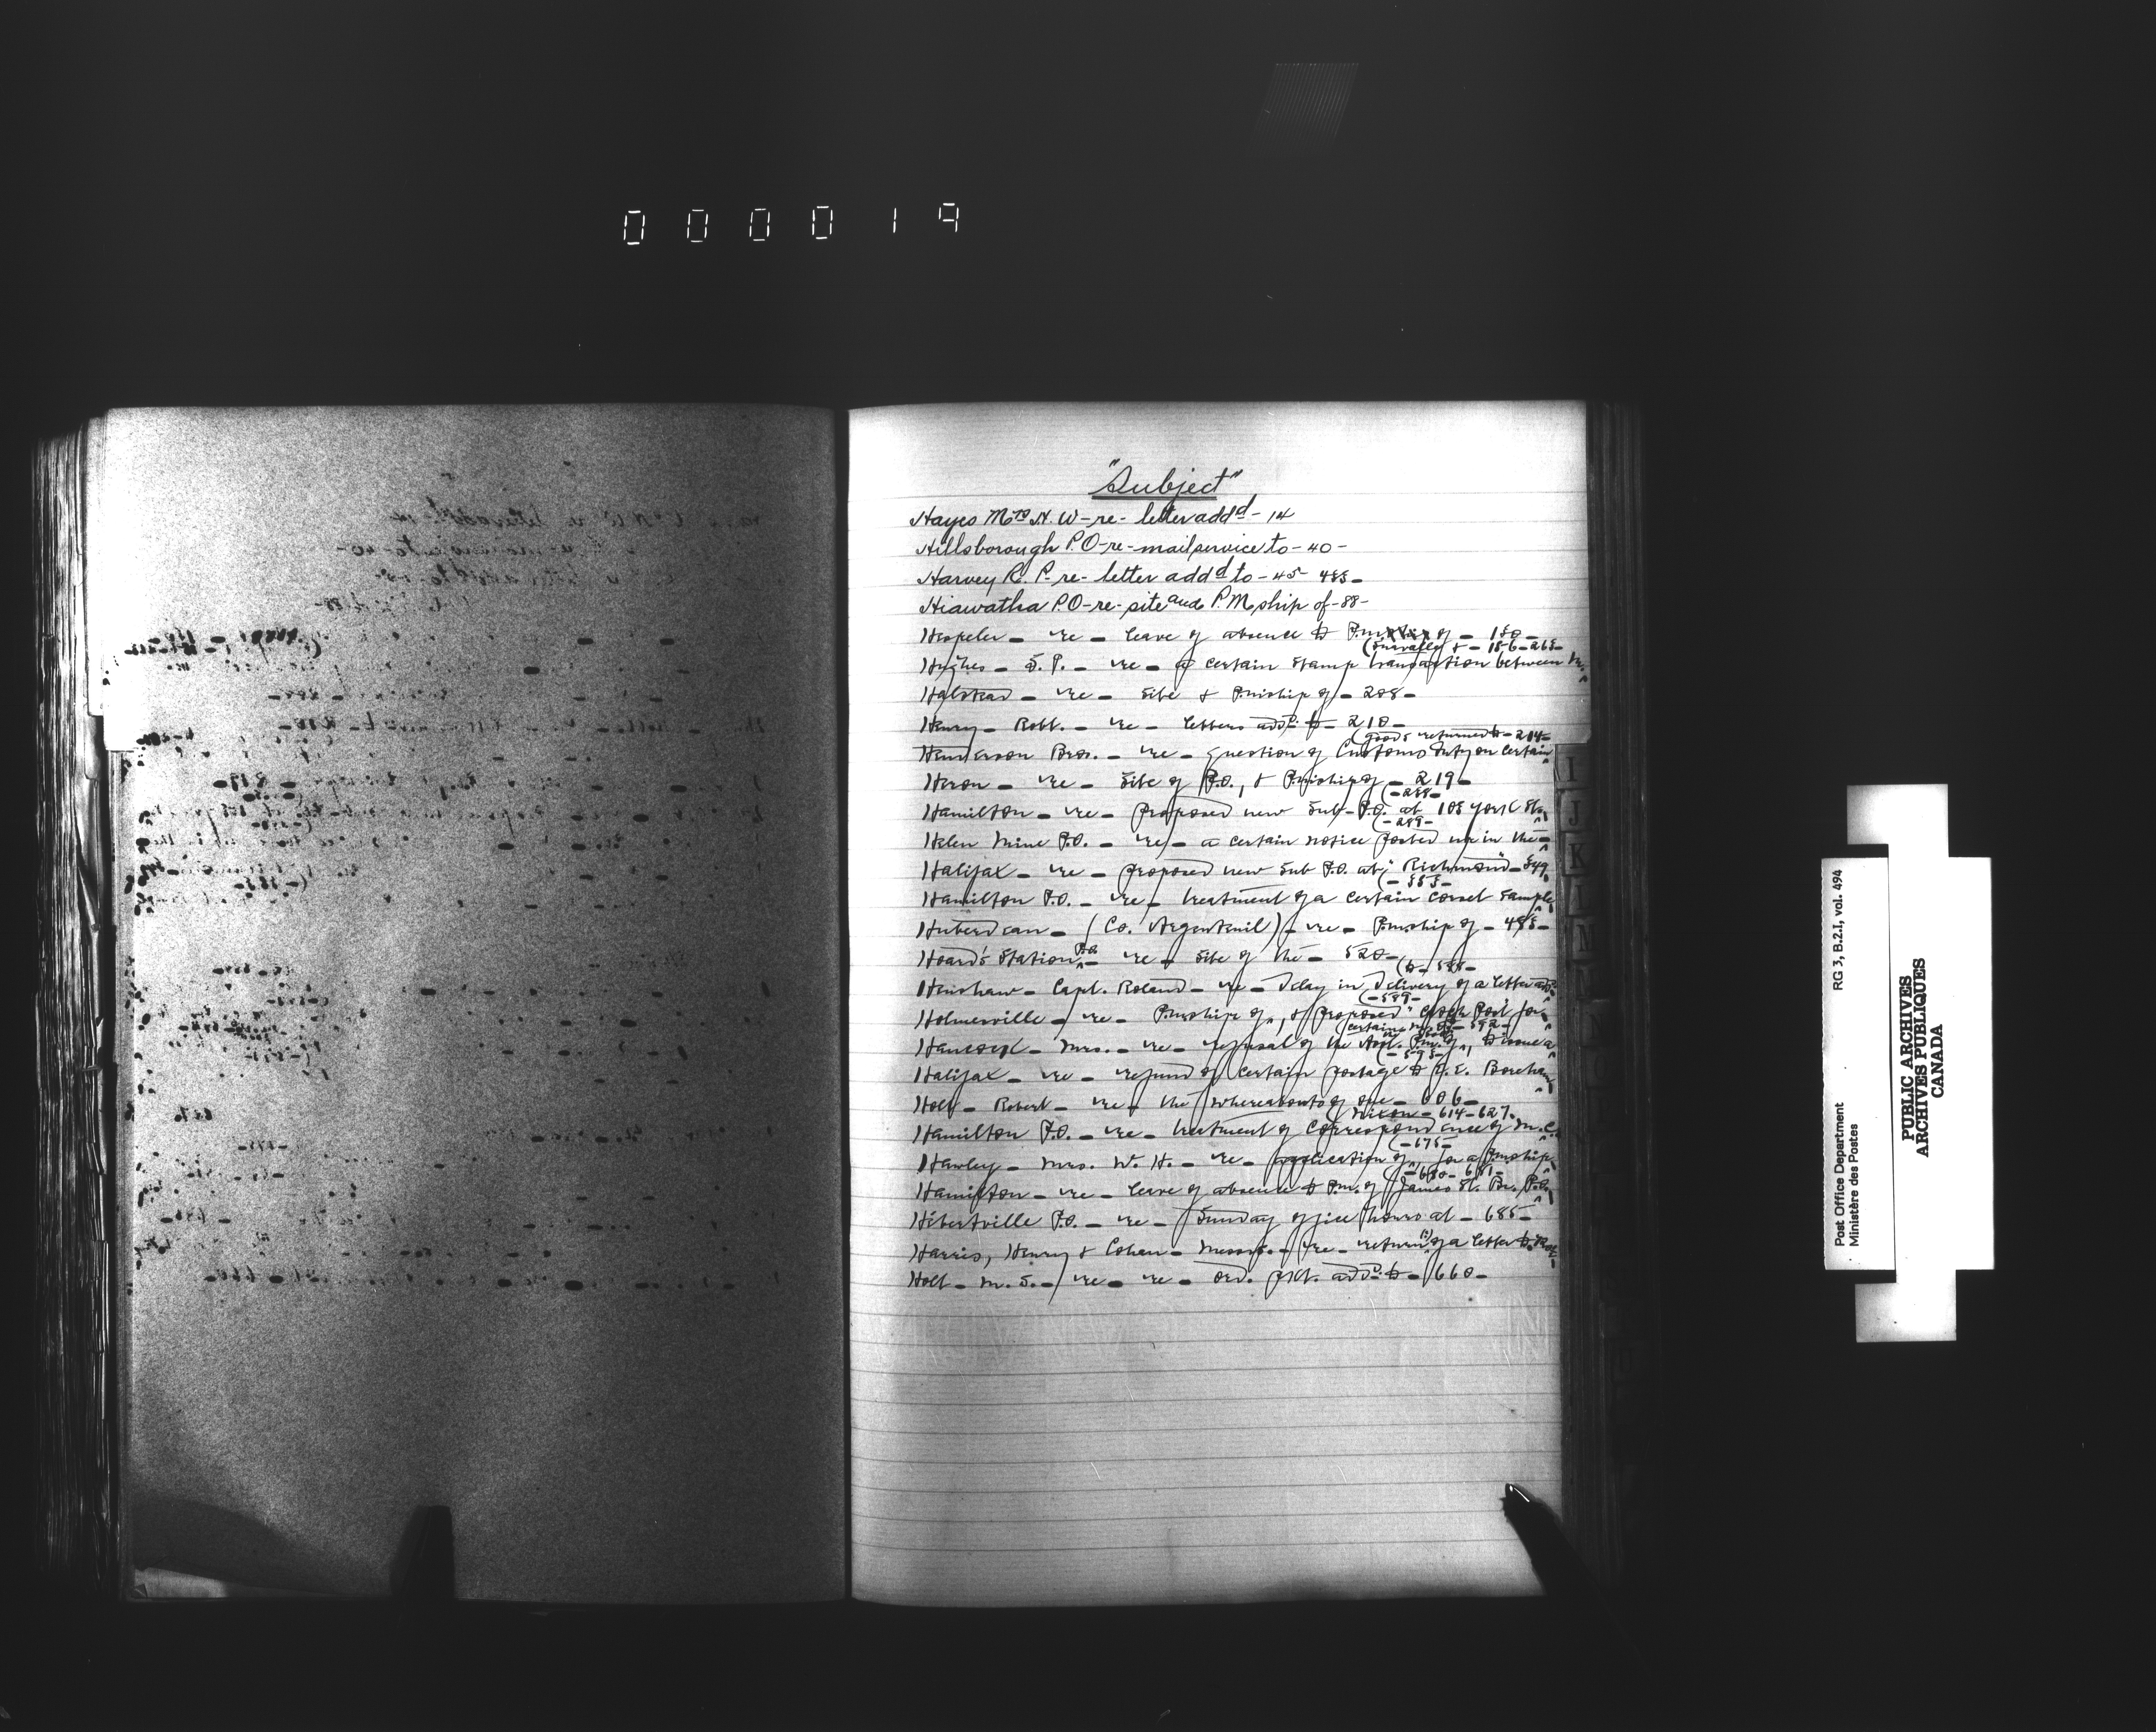 000019
"Subject"
Hayes Mrs N. W - re - letter addd - 14
Hillsborough P.O - re - mail service to - 40 -
Harvey R. P - re - letter addd to - 45 - 485 -
Hiawatha P.O - re - site and P.Mship of - 88 -
Hespeler - re - leave of absence to P.m of - 150 -
- 156 - 265 -
Hughes - S. P. - re - a certain stamp transaction between
Halstead - re - site & P.mship of - 208 -
Henry - Robt. - re - letters addd. to - 210 -
(goods returned to - 214 -
Henderson Bros. - re - question of Customs duty on certain
Heron - re - site of P.O., & P.mship of - 219 -
(- 288 -
Hamilton - re - proposed new Sub-P.O. at 105 York St.
(- 289 -
Helen Mine P.O. - re - a certain notice posted up in the
Halifax - re - proposed new Sub P.O. at "Richmond" - 349
(- 353 -
Hamilton P.O. - re - treatment of a certain corset sample
Huberdeau - (Co. Argenteuil) - re - P.mship of - 485 -
Hoard's Station P.O. - re - site of the - 520 -
(to - 585 -
Henshaw - Capt. Roland - re - delay in delivery of a letter addd
(- 589 -
Holmesville - re - P.mship of, & proposed for
certain - 592 -
Hancock - Mrs. - re - refusal of the Asst. P.m. of, to issue a
(- 595 -
Halifax - re - refund of certain postage to Boreham
Holt - Robert - re - the whereabouts of one - 606 -
(Nixon - 614 - 627.
Hamilton P.O. - re - treatment of correspondence of M. C.
(- 675 -
Hawley - Mrs. W. H. - re - application of, for a P.mship
(- 680 - 681 -
Hamilton - re - leave of absence to P.m. of James St. Br. P.O.
Hébertville P.O. - re - Sunday office hours at - 685 -
Harris, Henry & Cohan - Messrs. - re - return of a letter to
Holt - M. S. - re - re - ord. pkt. addd. to - 660 -
I
J
K
L
M
Post Office Department
Ministère des Postes
RG 3, B.2.I, vol. 494
PUBLIC ARCHIVES
ARCHIVES PUBLIQUES
CANADA